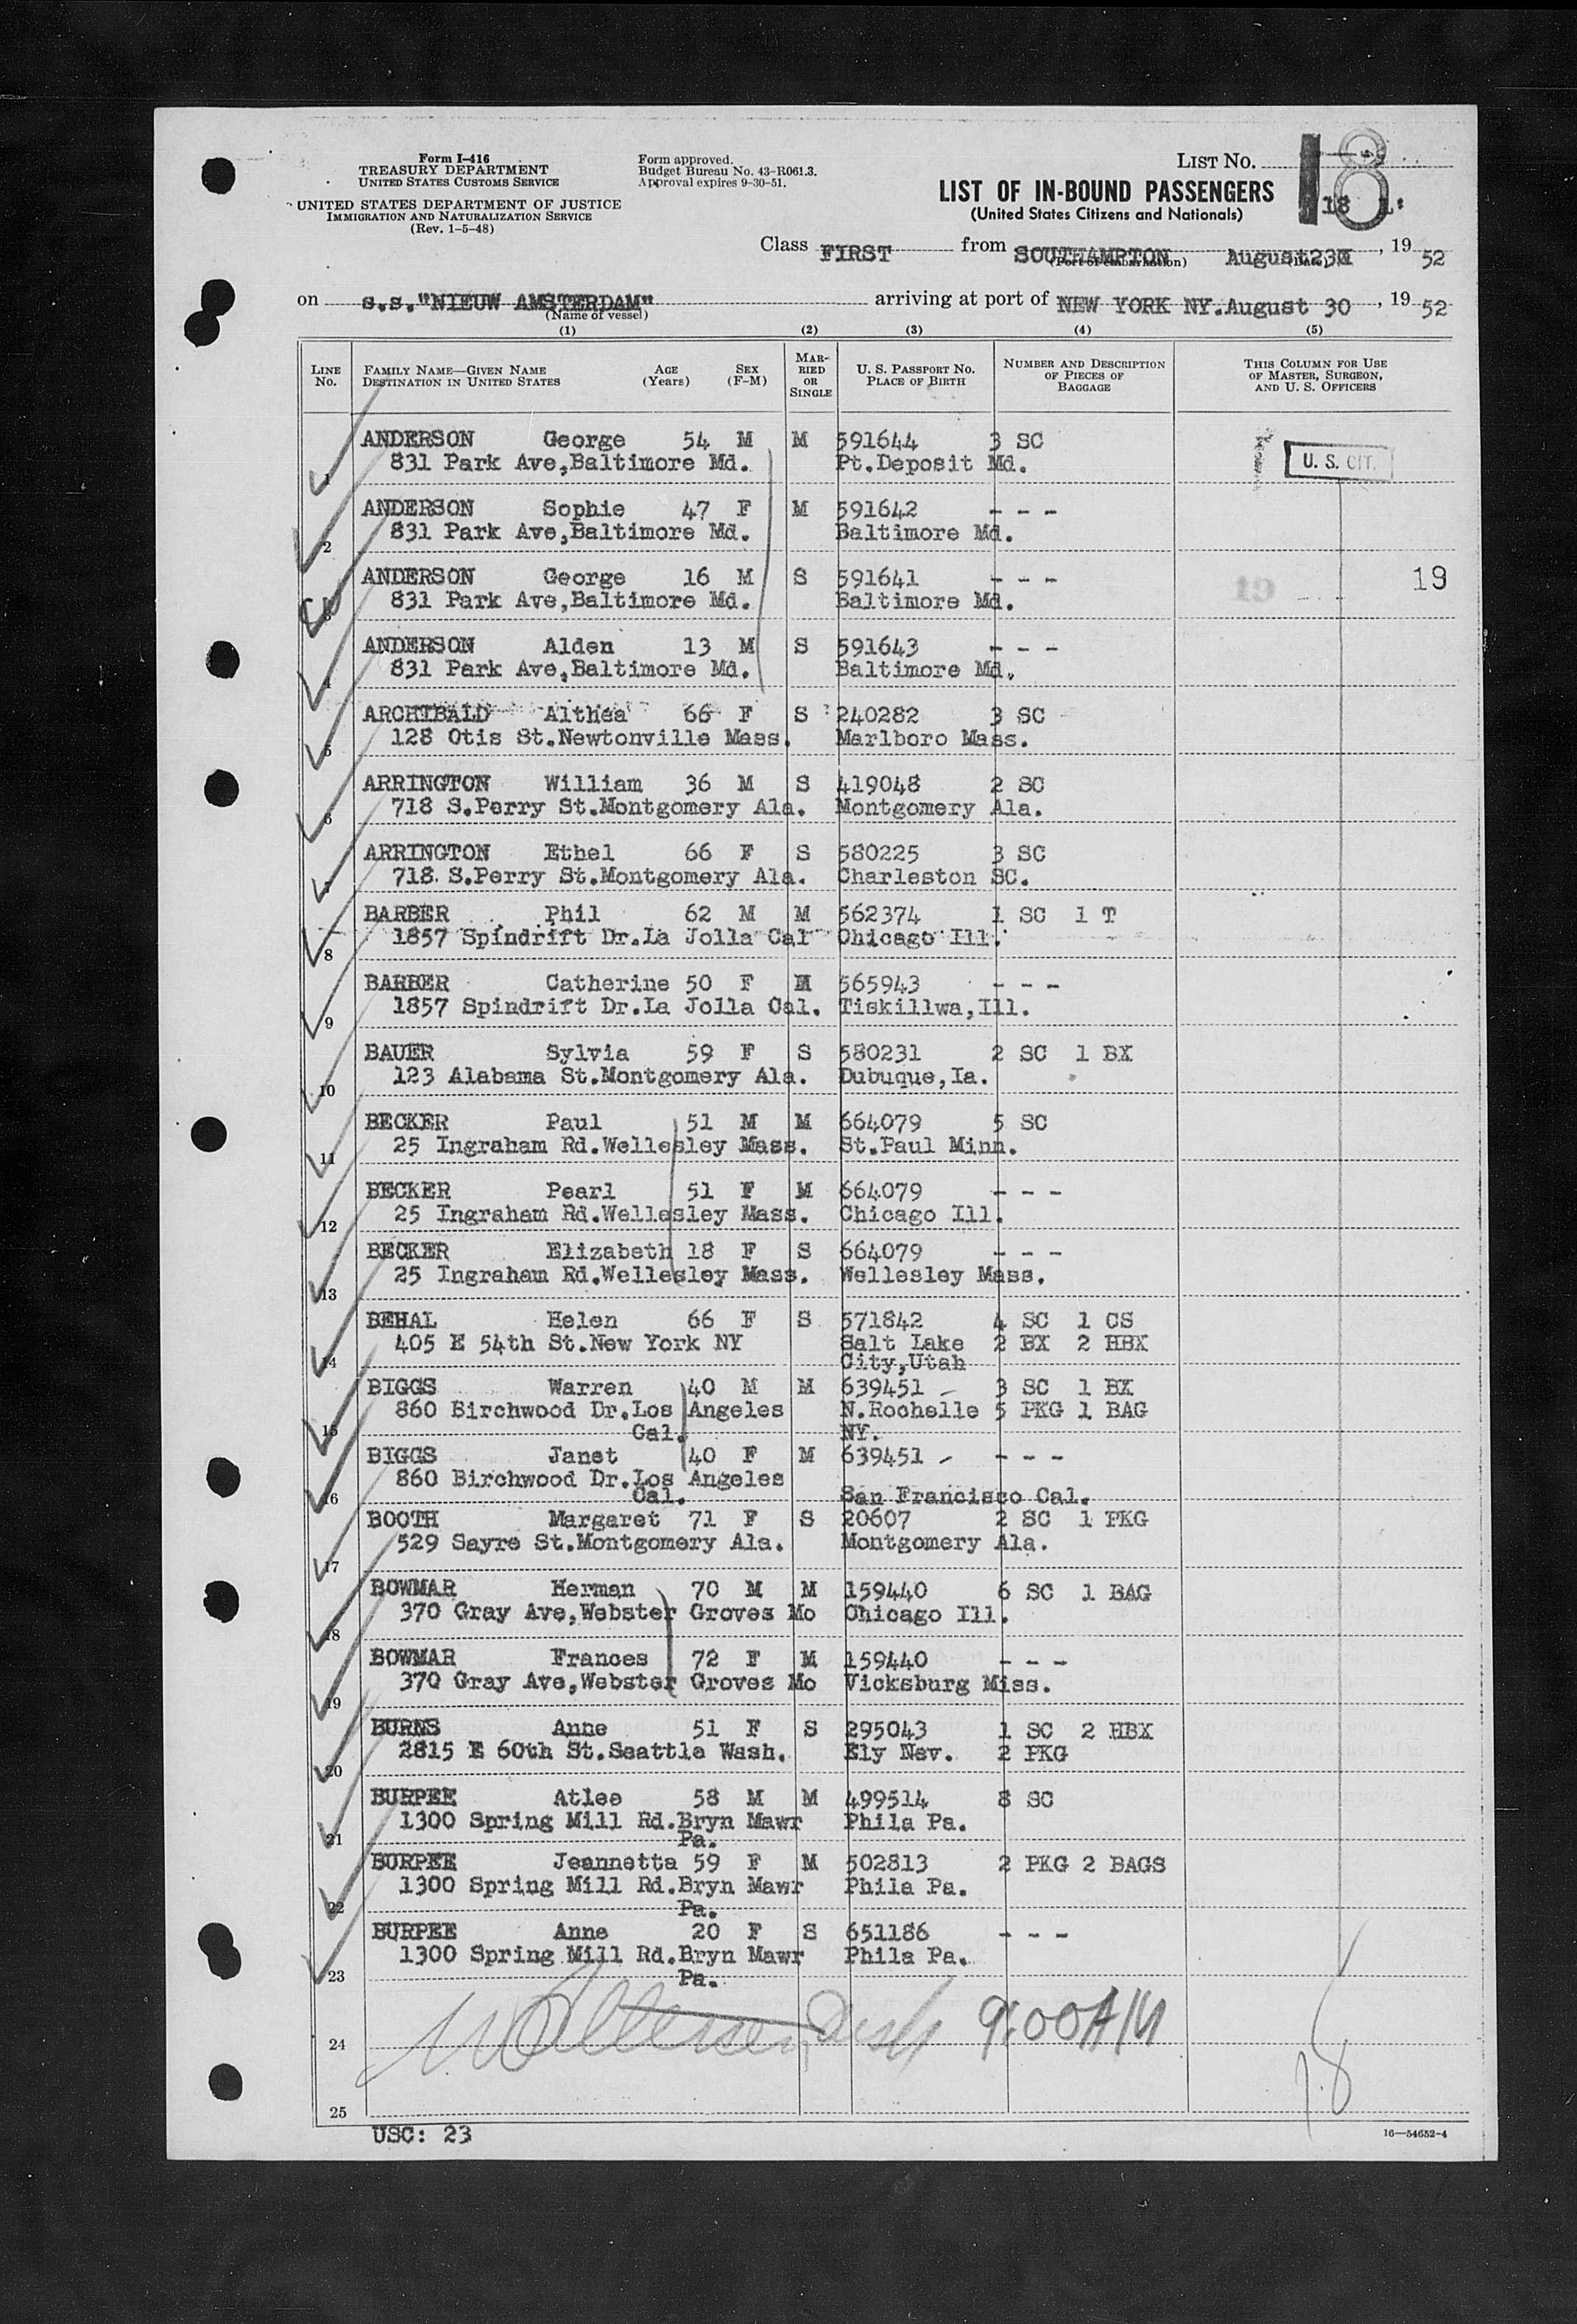 Form I-416
TREASURY DEPARTMENT
UNITED STATES CUSTOMS SERVICE
UNITED STATES DEPARTMENT OF JUSTICE
IMMIGRATION AND NATURALIZATION SERVICE
(Rev. 1-5-48)
Form approved.
Budget Bureau No. 43-R061.3.
Approval expires 9-30-51.
LIST NO. 18
LIST OF IN-BOUND PASSENGERS
(United States Citizens and Nationals)
18
Class FIRST from SOUTHAMPTON August 23, 1952
(Port of embarkation) (Date)
on s.s."NIEUW AMSTERDAM" arriving at port of NEW YORK NY. August 30, 1952
(Name of vessel)
(1) (2) (3) (4) (5)
LINE NO. FAMILY NAME—GIVEN NAME DESTINATION IN UNITED STATES AGE (Years) SEX (F-M) MARRIED OR SINGLE U. S. PASSPORT NO. PLACE OF BIRTH NUMBER AND DESCRIPTION OF PIECES OF BAGGAGE THIS COLUMN FOR USE OF MASTER, SURGEON, AND U. S. OFFICERS
ANDERSON George 54 M M 591644 3 SC
1 831 Park Ave,Baltimore Md. Pt.Deposit Md. U. S. CIT.
ANDERSON Sophie 47 F M 591642 - - -
2 831 Park Ave,Baltimore Md. Baltimore Md.
ANDERSON George 16 M S 591641 - - - 19 19
3 831 Park Ave,Baltimore Md. Baltimore Md.
ANDERSON Alden 13 M S 591643 - - -
4 831 Park Ave,Baltimore Md. Baltimore Md.
ARCHIBALD Althea 66 F S 240282 3 SC
5 128 Otis St.Newtonville Mass. Marlboro Mass.
ARRINGTON William 36 M S 419048 2 SC
6 718 S.Perry St.Montgomery Ala. Montgomery Ala.
ARRINGTON Ethel 66 F S 580225 3 SC
7 718 S.Perry St.Montgomery Ala. Charleston SC.
BARBER Phil 62 M M 562374 1 SC 1 T
8 1857 Spindrift Dr.La Jolla Cal Chicago Ill.
BARBER Catherine 50 F M 565943 - - -
9 1857 Spindrift Dr.La Jolla Cal. Tiskillwa,Ill.
BAUER Sylvia 59 F S 580231 2 SC 1 BX
10 123 Alabama St.Montgomery Ala. Dubuque,Ia.
BECKER Paul 51 M M 664079 5 SC
11 25 Ingraham Rd.Wellesley Mass. St.Paul Minn.
BECKER Pearl 51 F M 664079 - - -
12 25 Ingraham Rd.Wellesley Mass. Chicago Ill.
BECKER Elizabeth 18 F S 664079 - - -
13 25 Ingraham Rd.Wellesley Mass. Wellesley Mass.
BEHAL Helen 66 F S 571842 4 SC 1 CS
405 E 54th St.New York NY Salt Lake 2 BX 2 HBX
14 City,Utah
BIGGS Warren 40 M M 639451 3 SC 1 BX
860 Birchwood Dr.Los Angeles N.Rochelle 5 PKG 1 BAG
15 Cal. NY.
BIGGS Janet 40 F M 639451 - - -
860 Birchwood Dr.Los Angeles
16 Cal. San Francisco Cal.
BOOTH Margaret 71 F S 20607 2 SC 1 PKG
17 529 Sayre St.Montgomery Ala. Montgomery Ala.
BOWMAR Herman 70 M M 159440 6 SC 1 BAG
18 370 Gray Ave,Webster Groves Mo Chicago Ill.
BOWMAR Frances 72 F M 159440 - - -
19 370 Gray Ave,Webster Groves Mo Vicksburg Miss.
BURNS Anne 51 F S 295043 1 SC 2 HBX
20 2815 E 60th St.Seattle Wash. Ely Nev. 2 PKG
BURPEE Atlee 58 M M 499514 8 SC
1300 Spring Mill Rd.Bryn Mawr Phila Pa.
21 Pa.
BURPEE Jeannetta 59 F M 502813 2 PKG 2 BAGS
1300 Spring Mill Rd.Bryn Mawr Phila Pa.
22 Pa.
BURPEE Anne 20 F S 651186 - - -
1300 Spring Mill Rd.Bryn Mawr Phila Pa.
23 Pa.
24 9:00 AM
25
USC: 23
16—54652-4